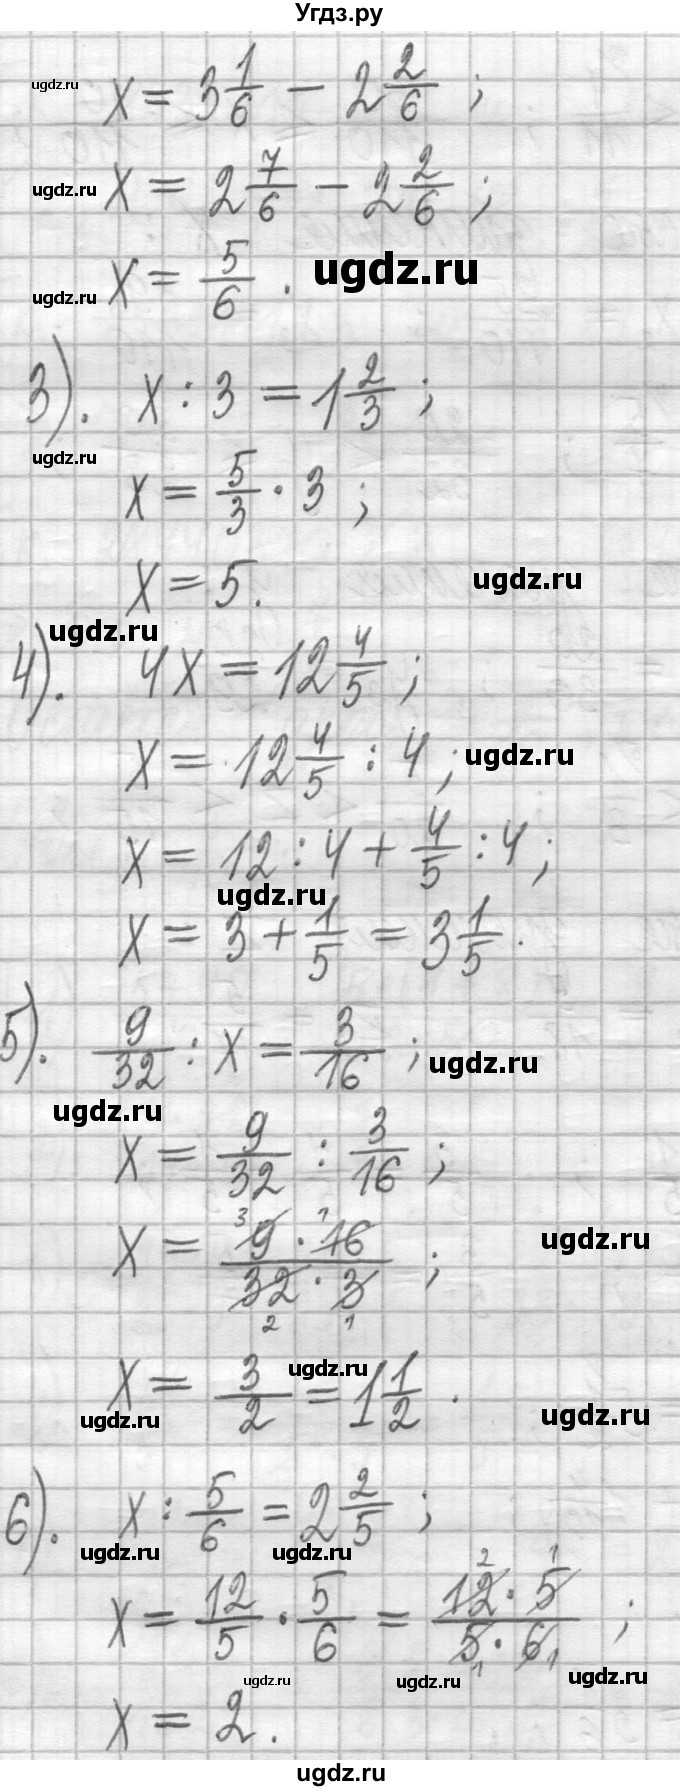 Угдз.ру
ugdz.ru
x = 3 1/6 - 2 2/6 ;
ugdz.ru
x = 2 7/6 - 2 2/6 ;
ugdz.ru
x = 5/6 .
ugdz.ru
3). x : 3 = 1 2/3 ;
ugdz.ru
x = 5/3 · 3 ;
x = 5.
ugdz.ru
ugdz.ru
4). 4x = 12 4/5 ;
x = 12 4/5 : 4 ;
ugdz.ru
x = 12 : 4 + 4/5 : 4 ;
ugdz.ru
x = 3 + 1/5 = 3 1/5 .
5). 9/32 : x = 3/16 ;
ugdz.ru
ugdz.ru
x = 9/32 : 3/16 ;
3 1
x = 9 · 16 / 32 · 3 ;
ugdz.ru
2 1
ugdz.ru
x = 3/2 = 1 1/2 .
ugdz.ru
ugdz.ru
6). x : 5/6 = 2 2/5 ;
ugdz.ru
ugdz.ru
2 1
x = 12/5 · 5/6 = 12 · 5 / 5 · 6 ;
1 1
ugdz.ru
ugdz.ru
ugdz.ru
x = 2.
ugdz.ru